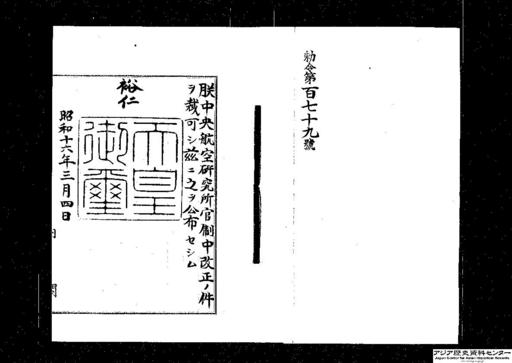 勅令第百七十九號
朕中央航空研究所官制中改正ノ件
ヲ裁可シ茲ニ之ヲ公布セシム
裕仁
天皇
御璽
昭和十六年三月四日
内 閣
アジア歴史資料センター
Japan Center for Asian Historical Records